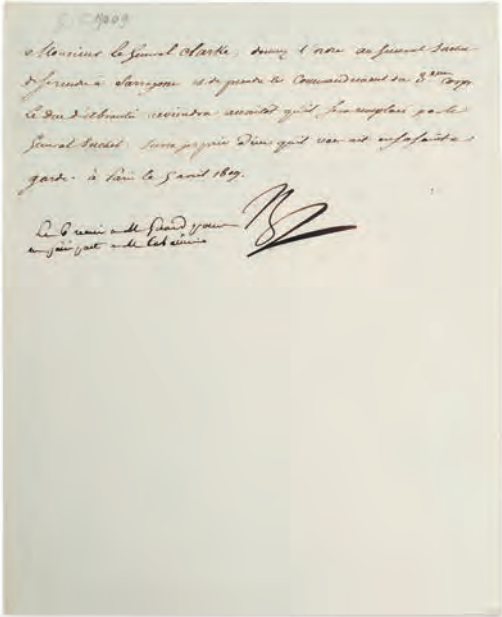 Monsieur le Général Clarke, donnez l'ordre au Général Suchet
de se rendre à Sarragosse et de prendre le Commandement du 3eme Corps
Le duc d'Abrantès reviendra aussitôt qu'il sera remplacé par le
Général Suchet. Sur ce je prie Dieu qu'il vous ait en sa sainte
garde. à Paris le 5 avril 1809.
Le 6 à M Gérard pour
en faire part à M